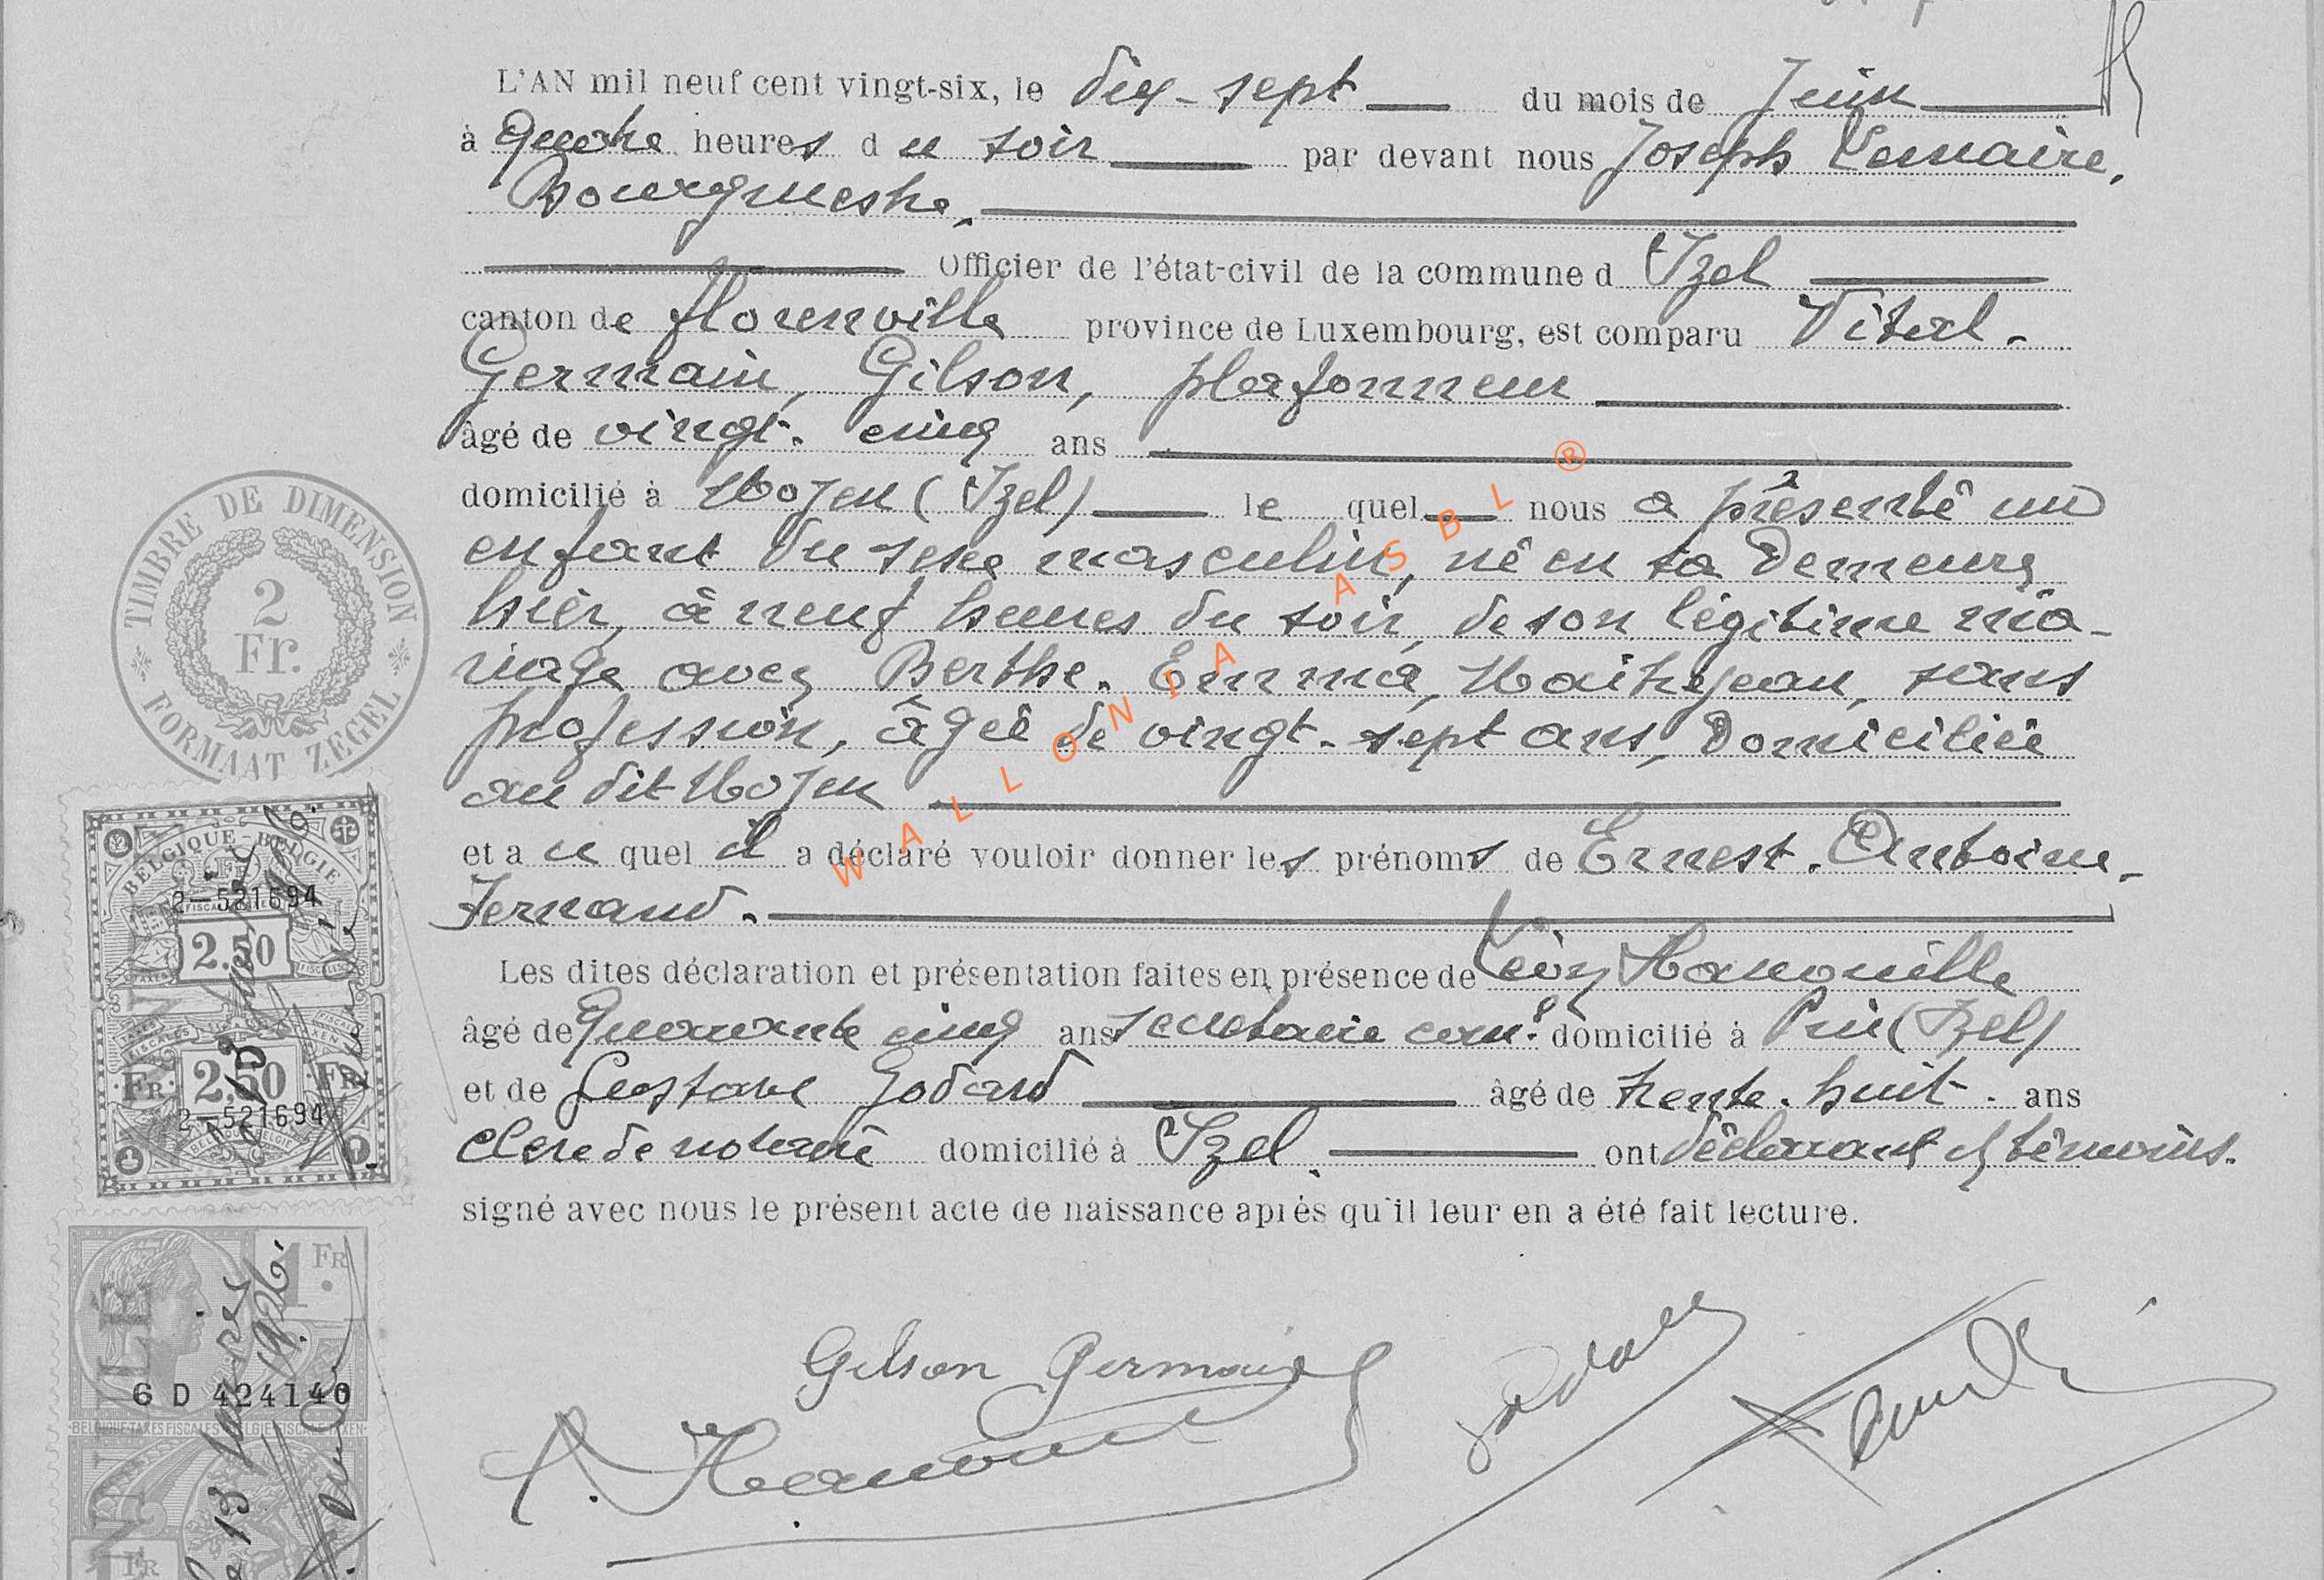 L'AN mil neuf cent vingt-six, le dix-sept du mois de Juin
à quatre heures du soir par devant nous Joseph Lemaire,
Bourgmestre.
Officier de l'état-civil de la commune d Izel
canton de florenville province de Luxembourg, est comparu Vital-
Germain, Gilson, plafonneur
âgé de vingt-cinq ans
domicilié à Moyen (Izel) le quel nous a présenté un
enfant du sexe masculin, né en sa demeure
hier, à neuf heures du soir, de son légitime ma-
riage avec Berthe-Emma, Maitrejean, sans
profession, âgée de vingt-sept ans, domiciliée
au dit Moyen
et a u quel il a déclaré vouloir donner les prénoms de Ernest-Antoine-
Fernand.
Les dites déclaration et présentation faites en présence de Léon Hanouille
âgé de quarante cinq ans secrétaire com. domicilié à Pin (Izel)
et de Gustave Godard âgé de trente-huit ans
clerc de notaire domicilié à Izel. ont déclarant et témoins.
signé avec nous le présent acte de naissance après qu'il leur en a été fait lecture.
Gilson Germain
WALLONIA ASBL ®
TIMBRE DE DIMENSION
2
Fr.
FORMAAT ZEGEL
BELGIQUE-BELGIE
2-521694
2.50
FR 2.50 FR
2-521694
1 FR
6 D 424140
BELGIQUE-TAXES FISCALES
le 13 1926.
FR